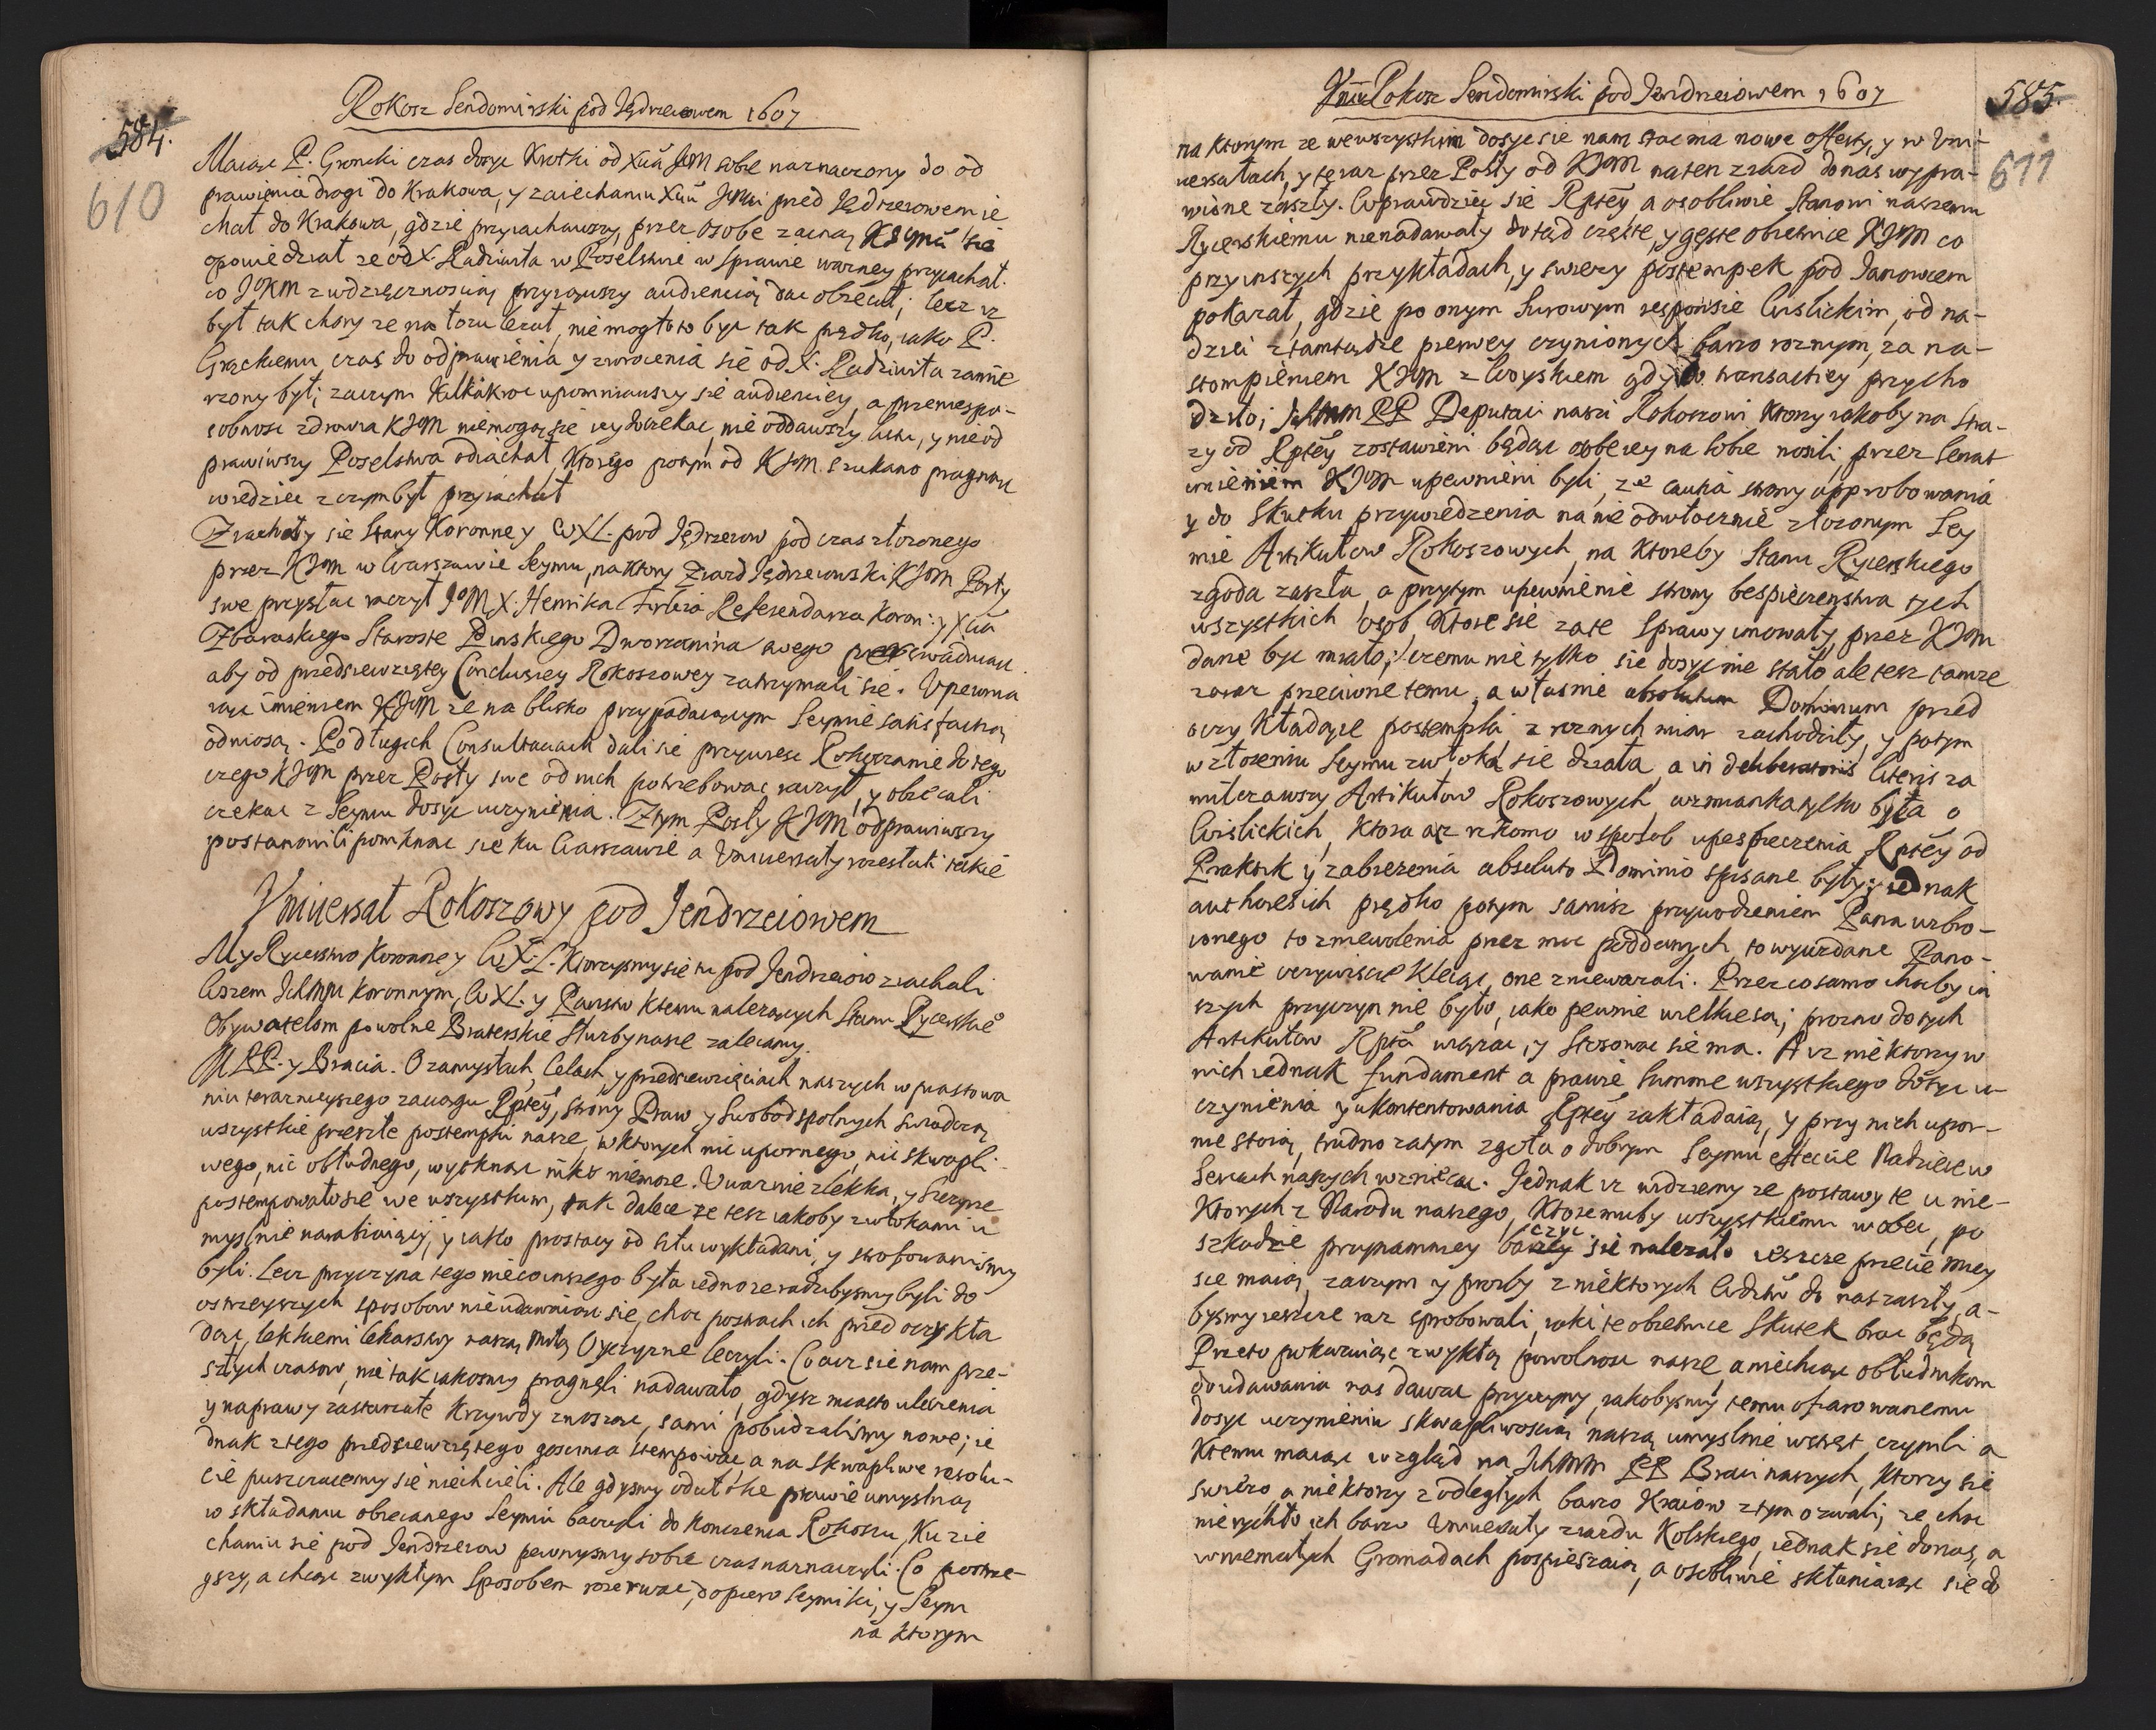 Rokosz Sendomirski pod Jędrzeiowem 1607
584.
610
Maiąc P. Gronski czas dosyc Krotki od Xcia JeM sobie naznaczony do od
prawienia drogi do Krakowa, y zaiechaniu Xciu JMci pred Jędrzeiowem ie
chał do Krakowa, gdzie przyiachawszy, przez osobe zacną KJMci sie
opowiedział ze od X. Radziwiła w Poselstwie w sprawie wazney przyiachał.
co JoKM z wdzięcznoscią przyiąwszy audiencią dac obiecał; lecz iz
był tak chory ze na łozu lezał, nie mogło to byc tak prędko, iako P.
czas do odprawienia y zwrocenia sie od X. Radziwiła zamie
rzony był; zaczym kilkakroc upomniawszy sie audienciey, a przeniespo-
sobnosc zdrowia KJoM niemogąc sie iey doczekac, nie oddawszy listu, y nie od
prawiwszy Poselstwa odiachał, Ktorego potym od KJoM szukano pragnąc
wiedziec z czym był przyiachał
Ziachały sie Stany Koronne y WXL. pod Jędrzeiow pod czas złozonego
przez KJoM w Warszawie Seymu, na ktory Ziazd Jędrzeiowski KJoM Posły
swe przysłac raczył JoM X. Henrika Firleia Referendarza Koron: y Xcia
Zbaraskiego Staroste Pinskiego Dworzanina swego perswaduiąc
aby od przedsiewziętey Conclusiey Rokoszowey zatrzymali sie. Upewnia
iąc imieniem KJoM ze na blisko przypadaiącym Seymie satisfactią
odniosą. Po długich Consultaciach dali sie przywiesc Rokoszanie do tego
czego KJoM przez Posły swe od nich potrzebowac raczył, y obiecali
czekac z Seymu dosyc uczynienia. Z tym Posły KJoM odprawiwszy
postanowili pomknąc sie ku Warszawie a Uniwersały rozesłali takie
Vniuersał Rokoszowy pod Jendrzeiowem
My Rycerstwo Koronne y W.X.L. Ktorzysmy sie tu pod Jendrzeiow ziachali
Wszem Ichmcm Koronnym, WXL. y Panstw ktemu nalezących Stanu Rycerskie
Obywatelom powolne Braterskie słuzby nasze zalecamy.
M PP. y Bracia. O zamysłach, celach, y przedsiewzięciach naszych w piastowa
niu teraznieyszego zaciągu Rptey, strony Praw y Swobod spolnych swiadczą
wszystkie przeszłe postempki nasze, w ktorych nic upornego, nic skwapli-
wego, nic obłudnego, wytknąc nikt niemoze. Uwaznie zlekka, y szczyrze
postempowało sie we wszystkim, tak dalece ze tesz iakoby zwłokami u
myslnie narabiaiący, y iakło prostacy od wykładani, y szofowanismy
byli. Lecz przyczyna tego nie co inszego była iedno ze radzibysmy byli do
ostrzeyszych sposobow nieudawaiąc sie, choc postrach ich przed oczy kła
dąc, lekkiemi lekarstwy naszą miłą Oyczyzne leczyli. Co acz sie nam prze-
szłych czasow, nie tak iakosmy pragnęli nadawało, gdysz miasto uleczenia
y naprawy zastarzałe krzywdy znosząc, sami pobudzalismy nowe; ie
dnak z tego przedsiewziętego goscinca stempowac, a na skwapliwe resolu-
cie puszczacesmy sie niechcieli. Ale gdysmy odwłokę prawie umyslną
w składaniu obiecanego Seymu baczyli do konczenia Rokoszu, ku zie
chaniu sie pod Jendrzeiow pewnysmy sobie czas naznaczyli. Co postrze-
gszy, a chcąc zwykłym sposobem rozerwac, dopiero Seymiki, y Seym
na ktorym
Rokosz Sendomirski pod Jendrzeiowem 1607
585.
611
na ktorym ze wewszystkim dosyc sie nam stac ma nowe offerty, y w Vni-
wersałach, y teraz przez Posły od KJoM na ten ziazd do nas wypra-
wione zaszły. Wprawdziec sie Rptey, a osobliwie Stanowi naszemu
Rycerskiemu nienadawały dotąd częste, y gęste obietnice KJoM co
przy inszych przykładach, y swiezy postempek pod Janowcem
pokazał, gdzie po onym surowym responsie Wislickim, od na-
dziei ztamtądze pierwey czynionych barzo roznym, za na-
stompieniem KJoM z Woyskiem gdy do transactiey przycho
dziło; Ichmm PP Deputaci naszi Rokoszowi Ktorzy iakoby na stra-
zy od Rptey zostawieni będąc osobe iey na sobie nosili, przez Senat
imieniem KJoM upewnieni byli, ze cautia strony approbowania
y do skutku przywiedzenia na nie odwłocznie złozonym Sey
mie Artikułow Rokoszowych, na ktoreby Stanu Rycerskiego
zgoda zaszła, a przytym upewnienie strony bespieczenstwa tych
wszystkich osob, Ktore sie za te sprawy imowały, przez KJoM
dane byc miało; czemu nie tylko sie dosyc nie stało ale tesz tamze
zaraz przeciwne temu, a własnie absolutum Dominium przed
oczy kładące postempki z roznych miar zachodziły, y potym
w złozeniu Seymu zwłoka sie działa, a in deliberatoriis literis za
milczawszy Artikułow Rokoszowych, wzmianka tylko była o
Wislickich, ktora acz rzkomo w sposob upespieczenia Rptey od
Praktik y zabiezenia absoluto Dominio spisane były; iednak
authoresich prędko potym samisz przywodzeniem Pana uzbro-
ionego to zniewolenia przez moc poddanych, to wyuzdane Pano-
wanie oczywiscie kleiąc, one zniewazali. Przez co samo chocby in
szych przyczyn nie było, iako pewnie wielkie są; prozno do tych
Artikułow Rpta wiązac, y stosowac sie ma. A iz niektorzy w
nich iednak fundament a prawie summe wszystkiego dosyc u-
czynienia y ukontentowania Rptey zakładaią, y przy nich upor-
nie stoią, trudno zatym zgoła o dobrym Seymu effecie Nadzieie w
sercach naszych wzniecac. Jednak iz widziemy ze postawy te u nie-
Ktorych z Narodu naszego, Ktoremuby wszystkiemu wobec, po
szkodzie przynammiey baczyc sie nalezało ieszcze przecie miey
sce maią, zaczym y prozby z niektorych Wdztw do nas zaszły, a-
bysmy ieszcze raz sprobowali, iaki te obietnice skutek brac będą
Przeto pokazuiąc zwykłą powolnosc nasze a niechcąc obłudnikom
do udawania nas dawac przyczyny, iakobysmy temu ofiarowanemu
dosyc uczynieniu skwapliwoscią naszą umyslnie wstręt czynili a
Ktemu maiąc wzgląd na Ichmm PP Braci naszych, Ktorzy sie
swiezo, a niektorzy z odległych barzo Kraiow z tym ozwali, ze choc
nierychło ich barzo Uniwersały ziazdu Kolskiego, iednak sie do nas, a
w niemałych Gromadach pospieszaią, a osobliwie skłaniaiąc sie do